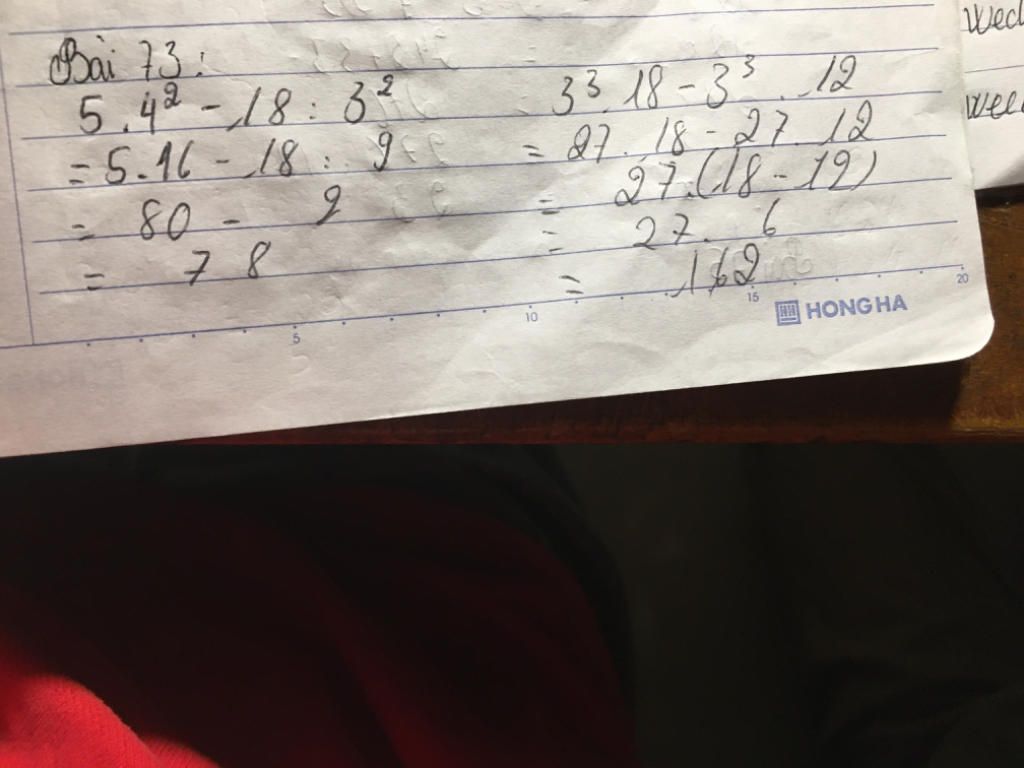 Bài 73:
5.4² - 18 : 3²
= 5.16 - 18 : 9
= 80 - 2
= 78
3³.18 - 3³.12
= 27.18 - 27.12
= 27.(18 - 12)
= 27.6
= 162
5
10
15
20
HONG HA